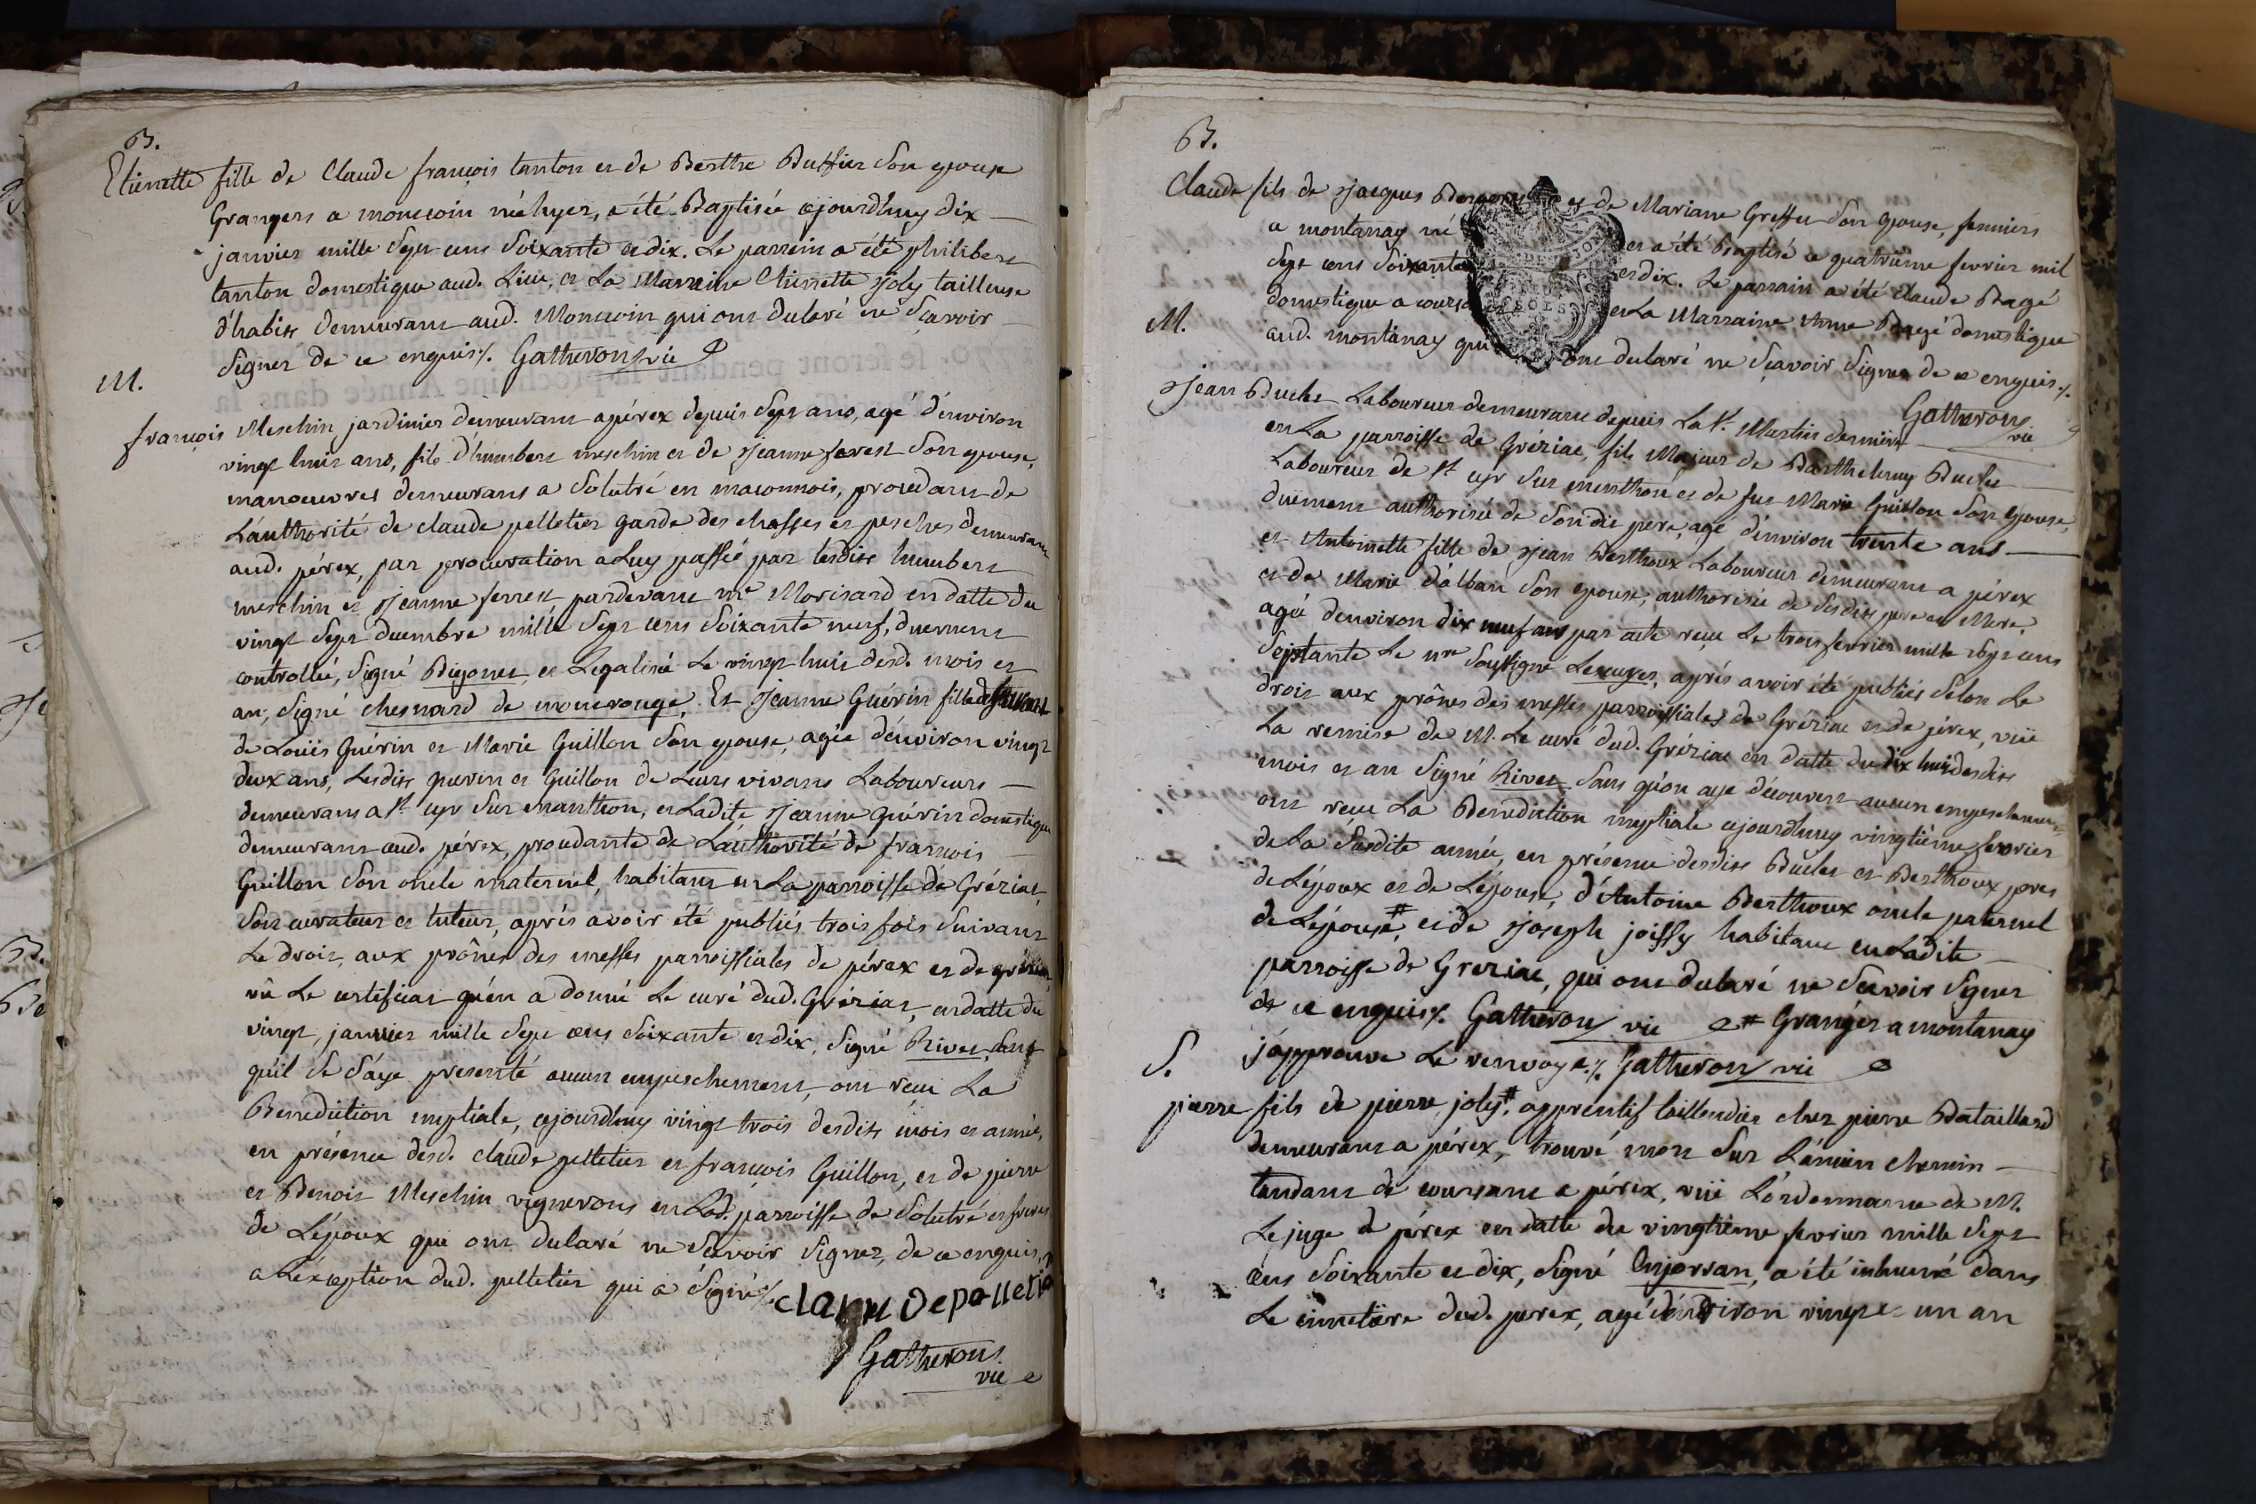 B.
Etiennette fille de Claude françois tanton et de Berthe Buffier son epouse
Grangers a moncoin née hyer, a été Baptisée cejourdhuy dix
janvier mille sept cens soixante et dix. Le parrein a été philibert
tanton domestique aud. Lieu, et La Marraine Etiennette Joly tailleuse
d'habits demeurans aud. Moncoin qui ont declaré ne Sçavoir
Signer de ce enquis%. Gatheron vic
M.
françois Meschin jardinier demeurant a pérex depuis Sept ans, agé d'environ
vingt huit ans, fils d'humbert meschin et de Jeanne forest Son epouse,
manoeuvres demeurans a Solutré en maconnois, procedant de
L'authorité de claude pelletier garde des chasses et pesches demeurant
aud. pérex, par procuration a Luy passée par lesdits humbert
meschin et Jeanne ferrest pardevant me Morisard en datte du
vingt sept decembre mille Sept cens Soixante neuf, duement
controllée, Signé Digonet, et Legalisée Le vingt huit desd. mois et
an, Signé chesnard de montrouge, Et Jeanne Guérin fille
de Loüis Guérin et Marie Guillon Son epouse, agée d'environ vingt
deux ans, Lesdits guerin et Guillon de Leurs vivans Laboureurs
demeurans a St. cyr Sur manthon, et Ladite Jeanne Guérin domestique
demeurant aud. pérex, procedante de L'authorité de françois
Guillon Son oncle maternel, habitant en La parroisse de Gréziat,
Son curateur et tuteur, aprés avoir été publiés trois fois Suivant
Le droit, aux prônes des messes parroissiales de pérex et de gréziat
vû Le certificat qu'en a donné Le curé dud. Gréziat, en datte du
vingt, janvier mille Sept cens Soixante et dix, Signé Rivet, Sans
qu'il Se S'aye presenté aucun empeschement, ont reçu La
Benediction nuptiale, cejourdhuy vingt trois desdits mois et année,
en présence desd. claude pelletier et françois Guillon, et de pierre
et Benoit Meschin vignerons en Lad. parroisse de Solutré et freres
de L'époux qui ont declaré ne Sçavoir Signer, de ce enquis,
a L'éxception dud. pelletier qui a Signé%.
Gatheron
vic
B.
Claude fils de Jacques et de Mariane Greffet Son epouse, fermiers
a montanay né et a été baptisé ce quatrieme fevrier mil
Sept cens Soixante et dix. Le parrain a été Claude Bagé
domestique a et La Marraine Anne Bagé domestique
aud. montanay qui ont declaré ne Sçavoir Signer de ce enquis%.
Gatheron
vic
M.
Jean Buclet Laboureur demeurant depuis La St. Martin derniere
en La parroisse de Gréziat, fils Majeur de Barthelemy Buclet
Laboureur de St. cyr Sur menthon et de fut Marie Guillon Son epouse,
düement authorisé de Sondit pere, agé d'environ trente ans
et Antoinette fille de Jean Berthoux Laboureur demeurant a pérex
et de Marie d'alban Son epouse, authorisée de Sesdits pere et Mere,
agée denviron dix neuf ans par acte reçu Le trois fevrier mille Sept cens
Septante Le me Soussigné Lescuyer, aprés avoir été publiés Selon Le
droit aux prônes des messes parroissiales de Gréziat et de pérex, vuë
La remise de M. Le curé dud. Gréziat en datte du dix huit desdits
mois et an Signé Rivet Sans qu'on aye découvert aucun empeschement,
ont reçu La Benediction nuptiale cejourdhuy vingtiéme fevrier
de La Susdite année, en présence desdits Buclet et Berthoux peres
de L'époux et de L'épouse, d'Antoine Berthoux oncle paternel
de L'épouse#, et de Joseph joissy habitant en Ladite
parroisse de Greziat, qui ont declaré ne Sçavoir Signer
de ce enquis%. Gatheron vic # Granger a montanay
j'approuve Le renvoy%. Gatheron vic
S.
pierre fils de pierre joly#, apprentif taillandier chez pierre Bataillard
demeurant a pérex, trouvé mort Sur L'ancien chemin
tendant de coursant a pérex, vuë L'ordonnance de M.
Le juge de pérex en datte du vingtiéme fevrier mille Sept
cens Soixante et dix, Signé Enjorran, a été inhumé dans
Le cimetiere dud. perex, agé d'environ vingt-un an